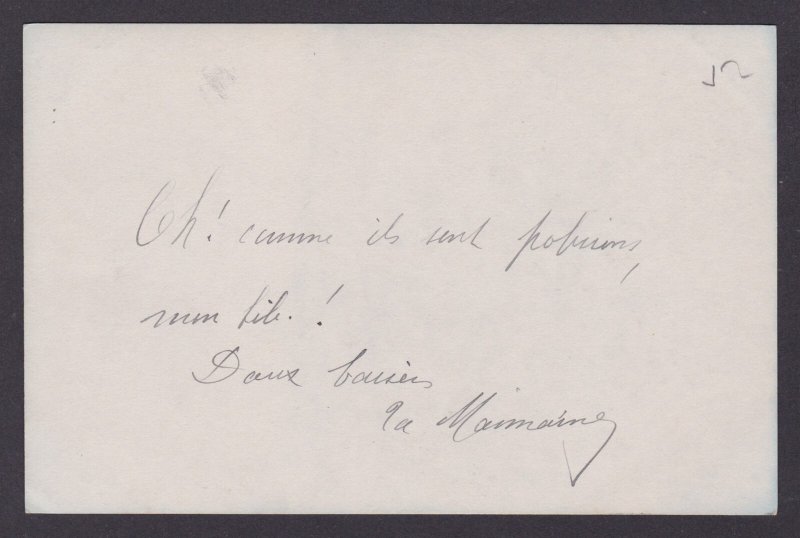 52
Oh! comme ils sont polissons,
mon Lili.!
Doux baisers
Ta Maimaine